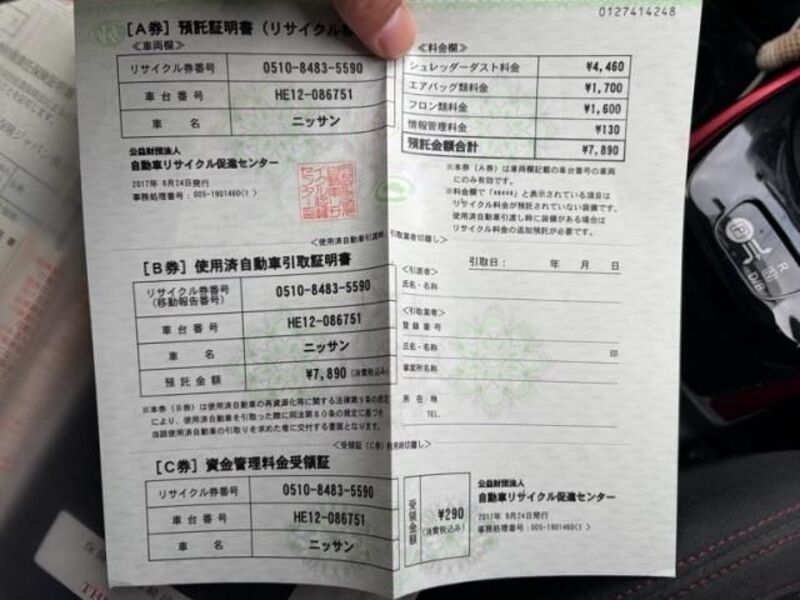 0127414248
[A券] 預託証明書 (リサイクル券
≪車両欄≫
リサイクル券番号 0510-8483-5590
車台番号 HE12-086751
車名 ニッサン
公益財団法人
自動車リサイクル促進センター
2017年 9月24日発行
事務処理番号:005-1901460(1 )
≪料金欄≫
シュレッダーダスト料金 ¥4,460
エアバッグ類料金 ¥1,700
フロン類料金 ¥1,600
情報管理料金 ¥130
預託金額合計 ¥7,890
※本券(A券)は車両欄記載の車台番号の車両
にのみ有効です。
※料金欄で「*****」と表示されている項目は
リサイクル料金が預託されていない装備です。
使用済自動車引渡し時に装備がある場合は
リサイクル料金の追加預託が必要です。
<使用済自動車引渡時、引取業者切離し>
[B券] 使用済自動車引取証明書
リサイクル券番号
(移動報告番号) 0510-8483-5590
車台番号 HE12-086751
車名 ニッサン
預託金額 ¥7,890 (消費税込み)
※本券(B券)は使用済自動車の再資源化等に関する法律第9条の規定
により、使用済自動車を引取った際に同法第80条の規定に基づき
当該使用済自動車の引取りを求めた者に交付する書面となります。
引取日: 年 月 日
<引渡者>
氏名・名称
<引取業者>
登録番号
氏名・名称 印
事業所名称
所在地
TEL.
<受領証(C券)利用時切離し>
[C券] 資金管理料金受領証
リサイクル券番号 0510-8483-5590
車台番号 HE12-086751
車名 ニッサン
受領金額 ¥290
(消費税込み)
公益財団法人
自動車リサイクル促進センター
2017年 9月24日発行
事務処理番号:005-1901460(1 )